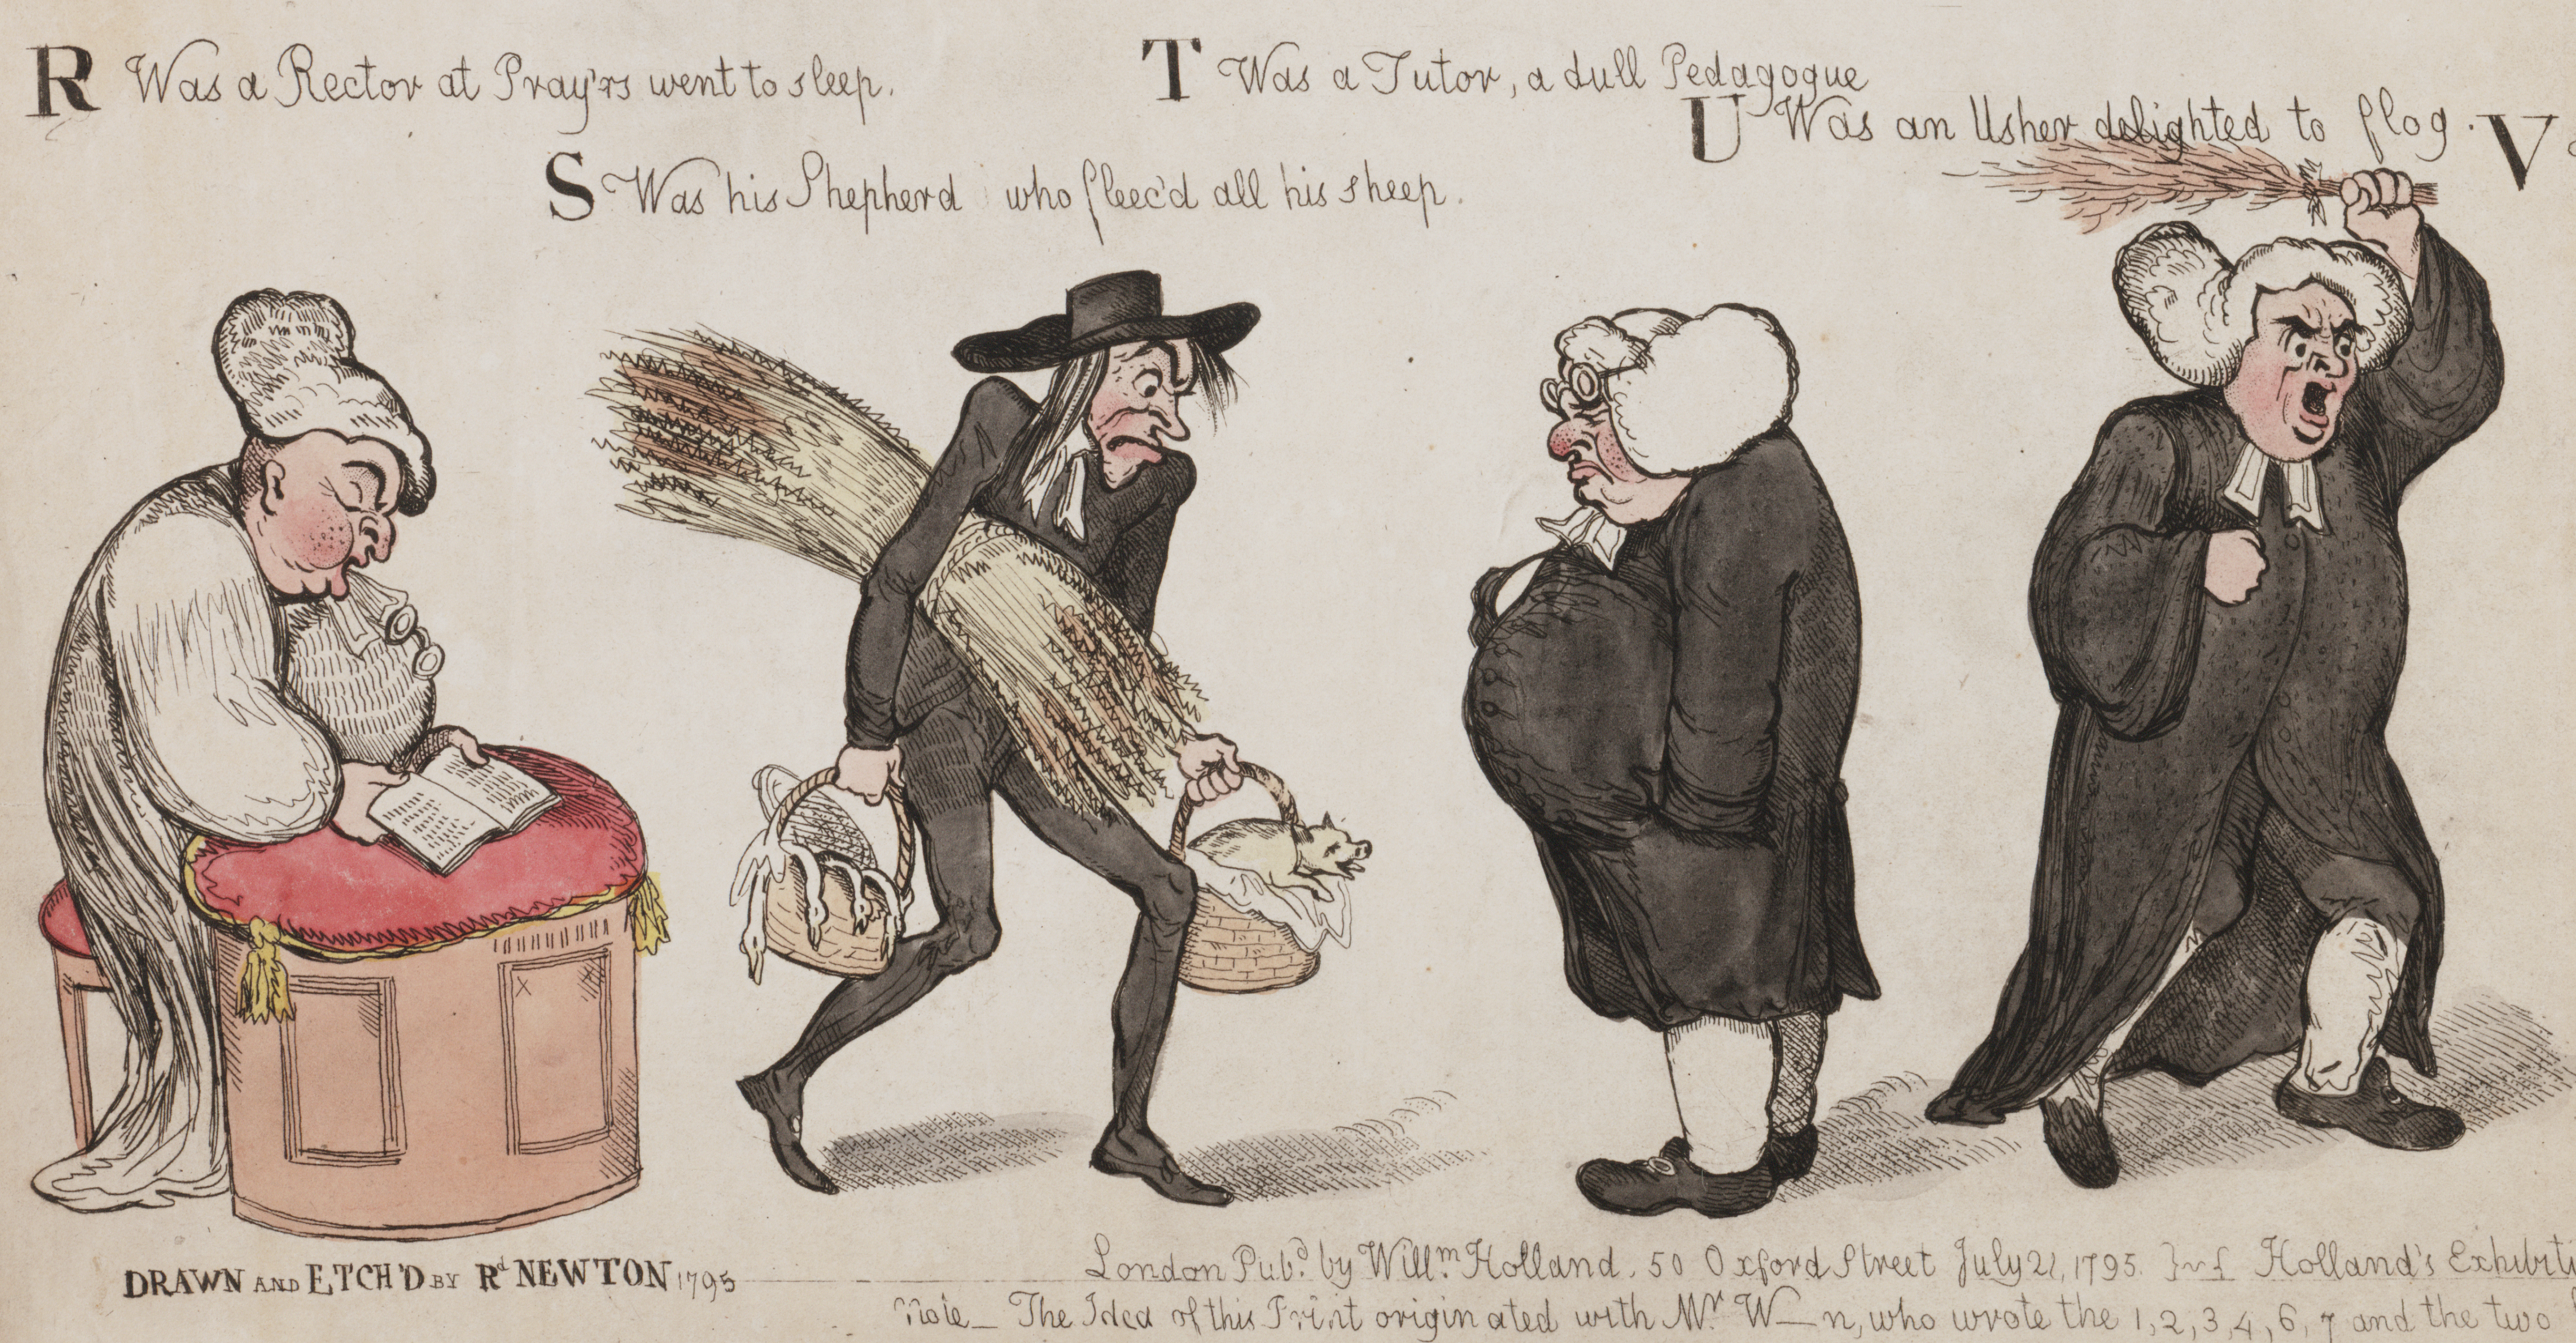 R Was a Rector at Pray'rs went to sleep.
S Was his Shepherd who fleec'd all his sheep.
T Was a Tutor, a dull Pedagogue
U Was an Usher delighted to flog.
V
DRAWN AND ETCH'D BY Rd NEWTON 1795
London Pubd. by Willm. Holland. 50 Oxford Street July 21, 1795. Holland's Exhibiti
Note_ The Idea of this Print originated with Mr. W__n, who wrote the 1, 2, 3, 4, 6, 7 and the two